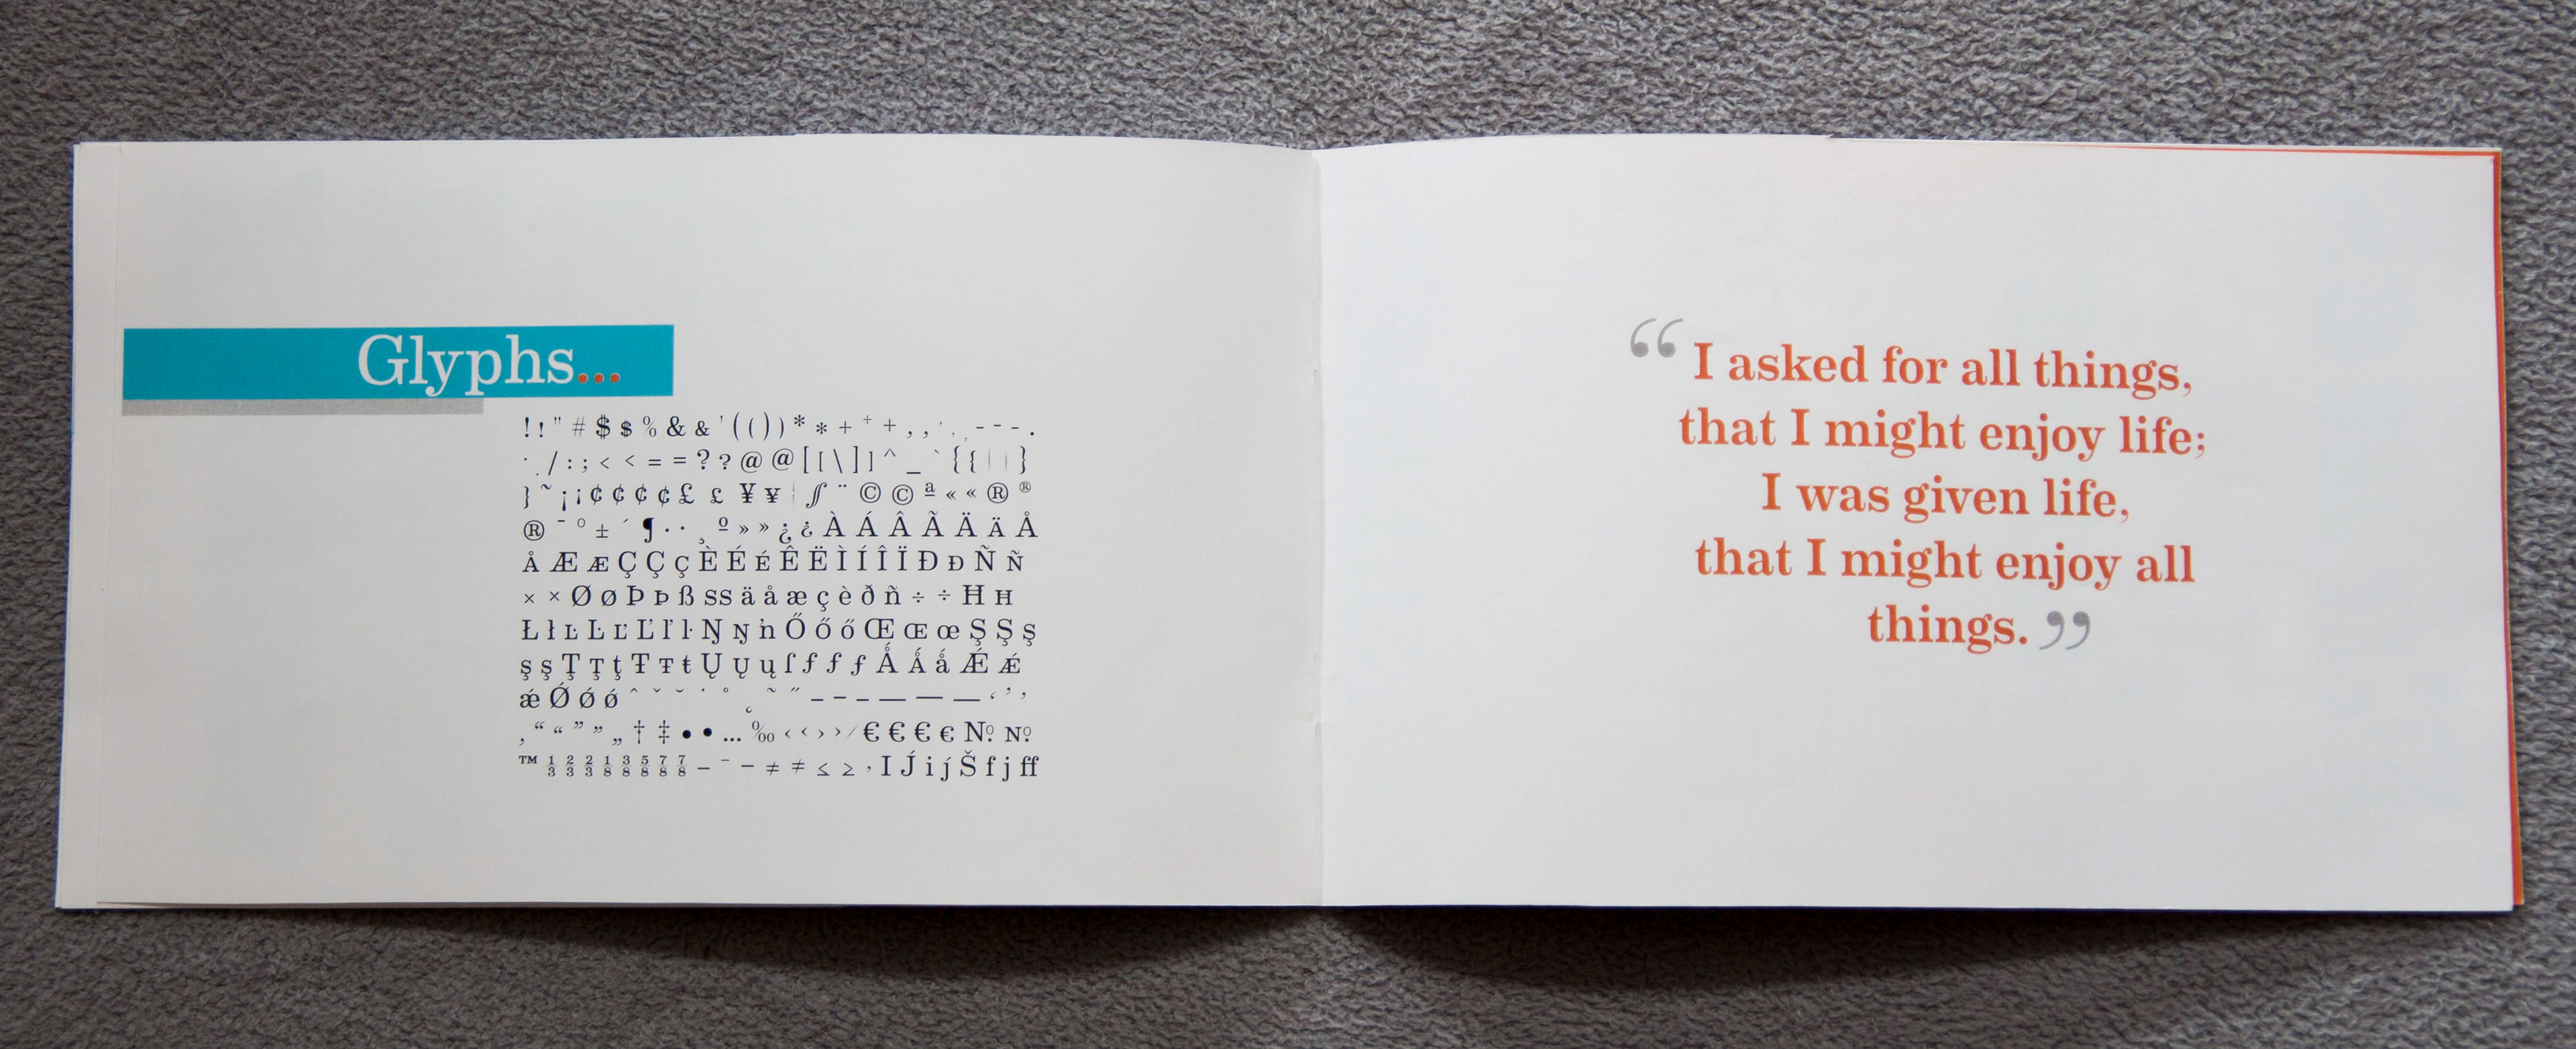 Glyphs...
! ! " # $ $ % & & ' ( ( ) ) * * + + + , , - - - .
/ : ; < < = = ? ? @ @ [ [ \ ] ] ^ _ ` { { | | }
} ~ ¡ ¡ ¢ ¢ ¢ ¢ £ £ ¥ ¥ ¦ ¨ © © ª « « ® ®
® ¯ º ± ´ ¶ · · ¸ º » » ¿ ¿ À Á Â Ã Ä Ä Å
Å Æ Æ Ç Ç ç È É É Ê Ë Ì Í Î Ï Ð Ð Ñ Ñ
× × Ø ø Þ Þ ß ss ä å æ ç è ð ñ ÷ ÷ Ħ Ħ
Ŀ ŀ Ŋ Ŋ ŉ Ő ő ő Œ Œ œ Ş Ş ş
ş ş Ţ Ţ ţ Ŧ Ŧ ŧ Ų Ų ų ſ ƒ ƒ ƒ Ǻ Ǻ ǻ Ǽ Ǽ
ǽ Ǿ ǿ ǿ ˆ ˇ ˘ ˙ ˚ ˛ ˜ ˝ – – – — — — ‘ ’ ’
‚ “ “ ” ” „ † ‡ • • … ‰ ‹ ‹ › › ⁄ € € € € № №
™ ⅓ ⅔ ⅔ ⅛ ⅜ ⅝ ⅞ ⅞ − − − ≠ ≠ ≤ ≥ , I J́ i j́ Š f j ff
“ I asked for all things,
that I might enjoy life;
I was given life,
that I might enjoy all
things. ”